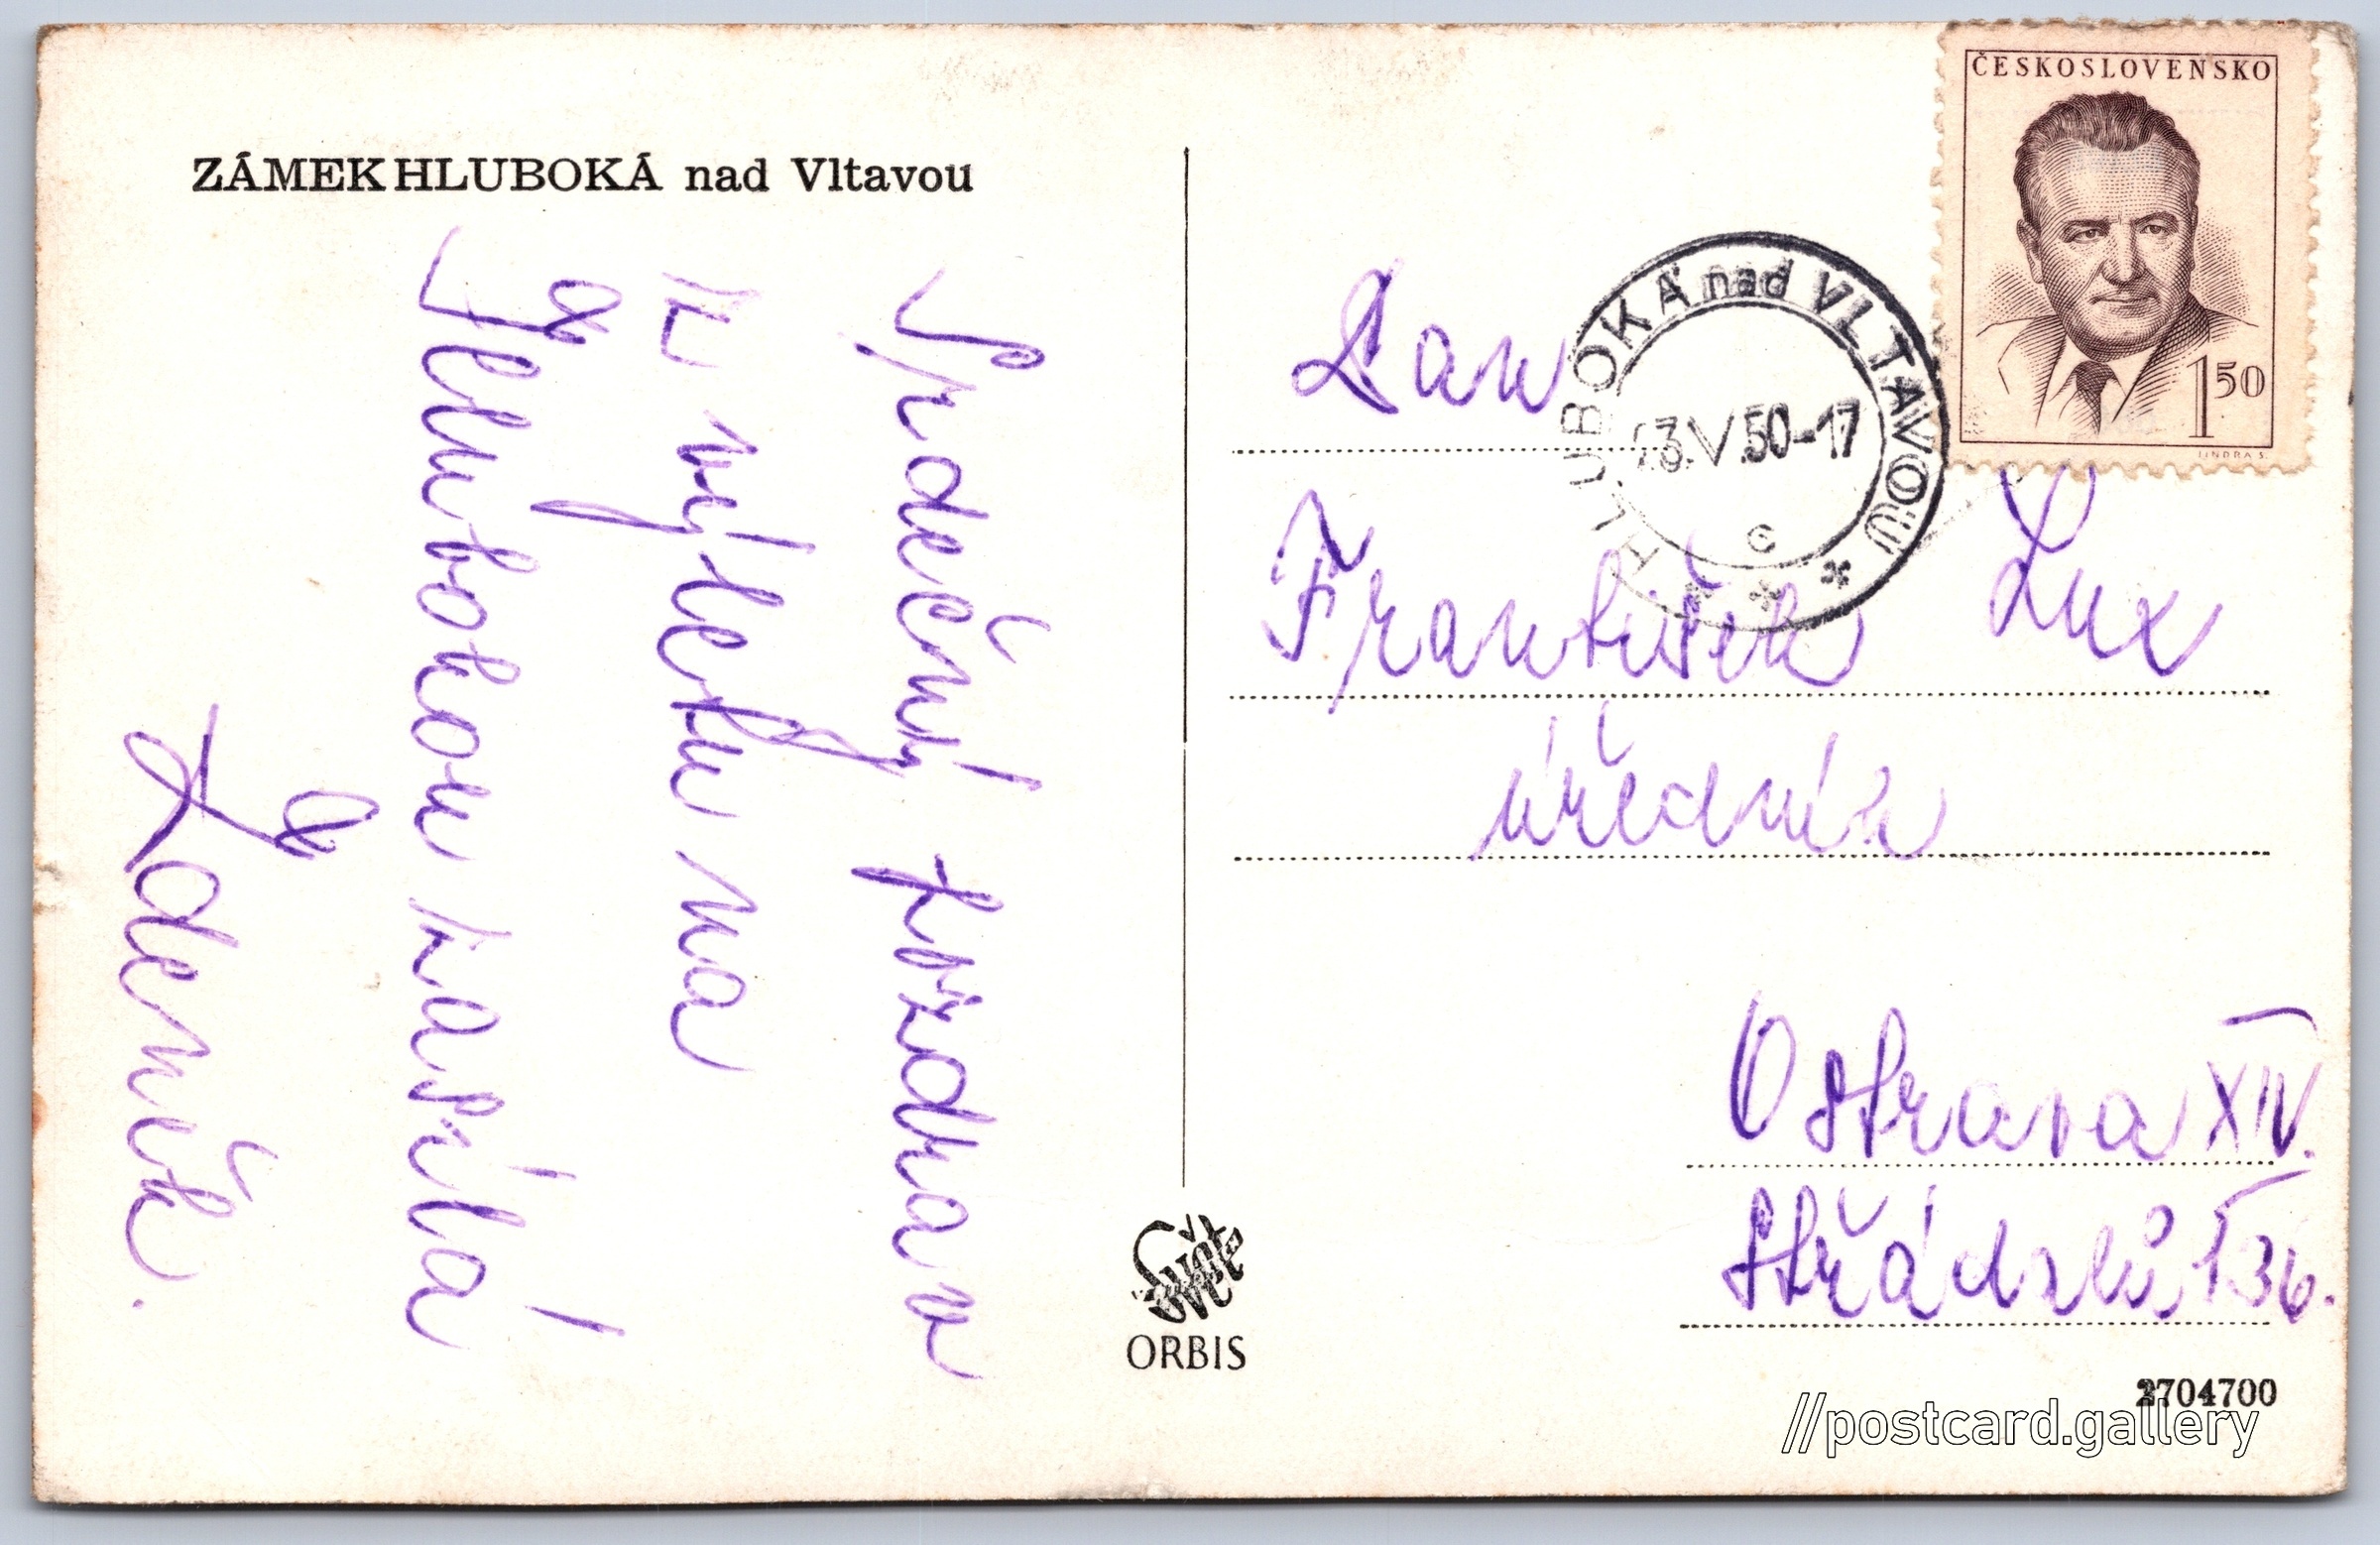 ZÁMEK HLUBOKÁ nad Vltavou
Srdečný pozdrav
z výletu na
Hlubokou zasílá
Zdeněk.
ČESKOSLOVENSKO
1 50
JINDRA S.
HLUBOKÁ nad VLTAVOU
23.V.50-17
c
Pan
František Lux
úředník
Ostrava XIV.
Střádalů 136.
Svět
ORBIS
2704700
//postcard.gallery